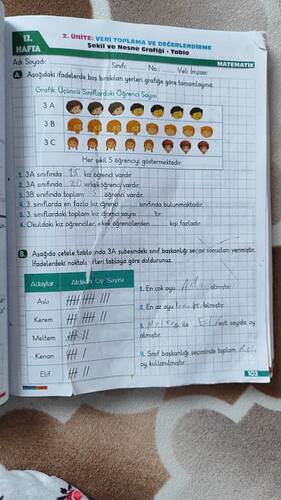 12.
HAFTA
2. ÜNİTE: VERİ TOPLAMA VE DEĞERLENDİRME
Şekil ve Nesne Grafiği - Tablo
MATEMATİK
Adı Soyadı: Sınıfı: No.: Veli İmzası:
A. Aşağıdaki ifadelerde boş bırakılan yerleri grafiğe göre tamamlayınız.
Grafik: Üçüncü Sınıflardaki Öğrenci Sayısı
3 A
3 B
3 C
Her şekil 5 öğrenciyi göstermektedir.
1. 3A sınıfında 15 kız öğrenci vardır.
2. 3A sınıfında 20 erkek öğrenci vardır.
3. 3B sınıfında toplam öğrenci vardır.
4. 3. sınıflarda en fazla kız öğrenci sınıfında bulunmaktadır.
5. 3. sınıflardaki toplam kız öğrenci sayısı
6. Okuldaki kız öğrenciler, erkek öğrencilerden kişi fazladır.
B. Aşağıda çetele tablosunda 3A şubesindeki sınıf başkanlığı seçim sonuçları verilmiştir.
İfadelerdeki noktalı yerleri tabloya göre doldurunuz.
Adaylar Aldıkları Oy Sayısı
Aslı
Kerem
Meltem
Kenan
Elif
1. En çok oyu almıştır.
2. En az oyu almıştır.
3. Meltem ile Elif eşit sayıda oy
almıştır.
4. Sınıf başkanlığı seçiminde toplam
oy kullanılmıştır.
103